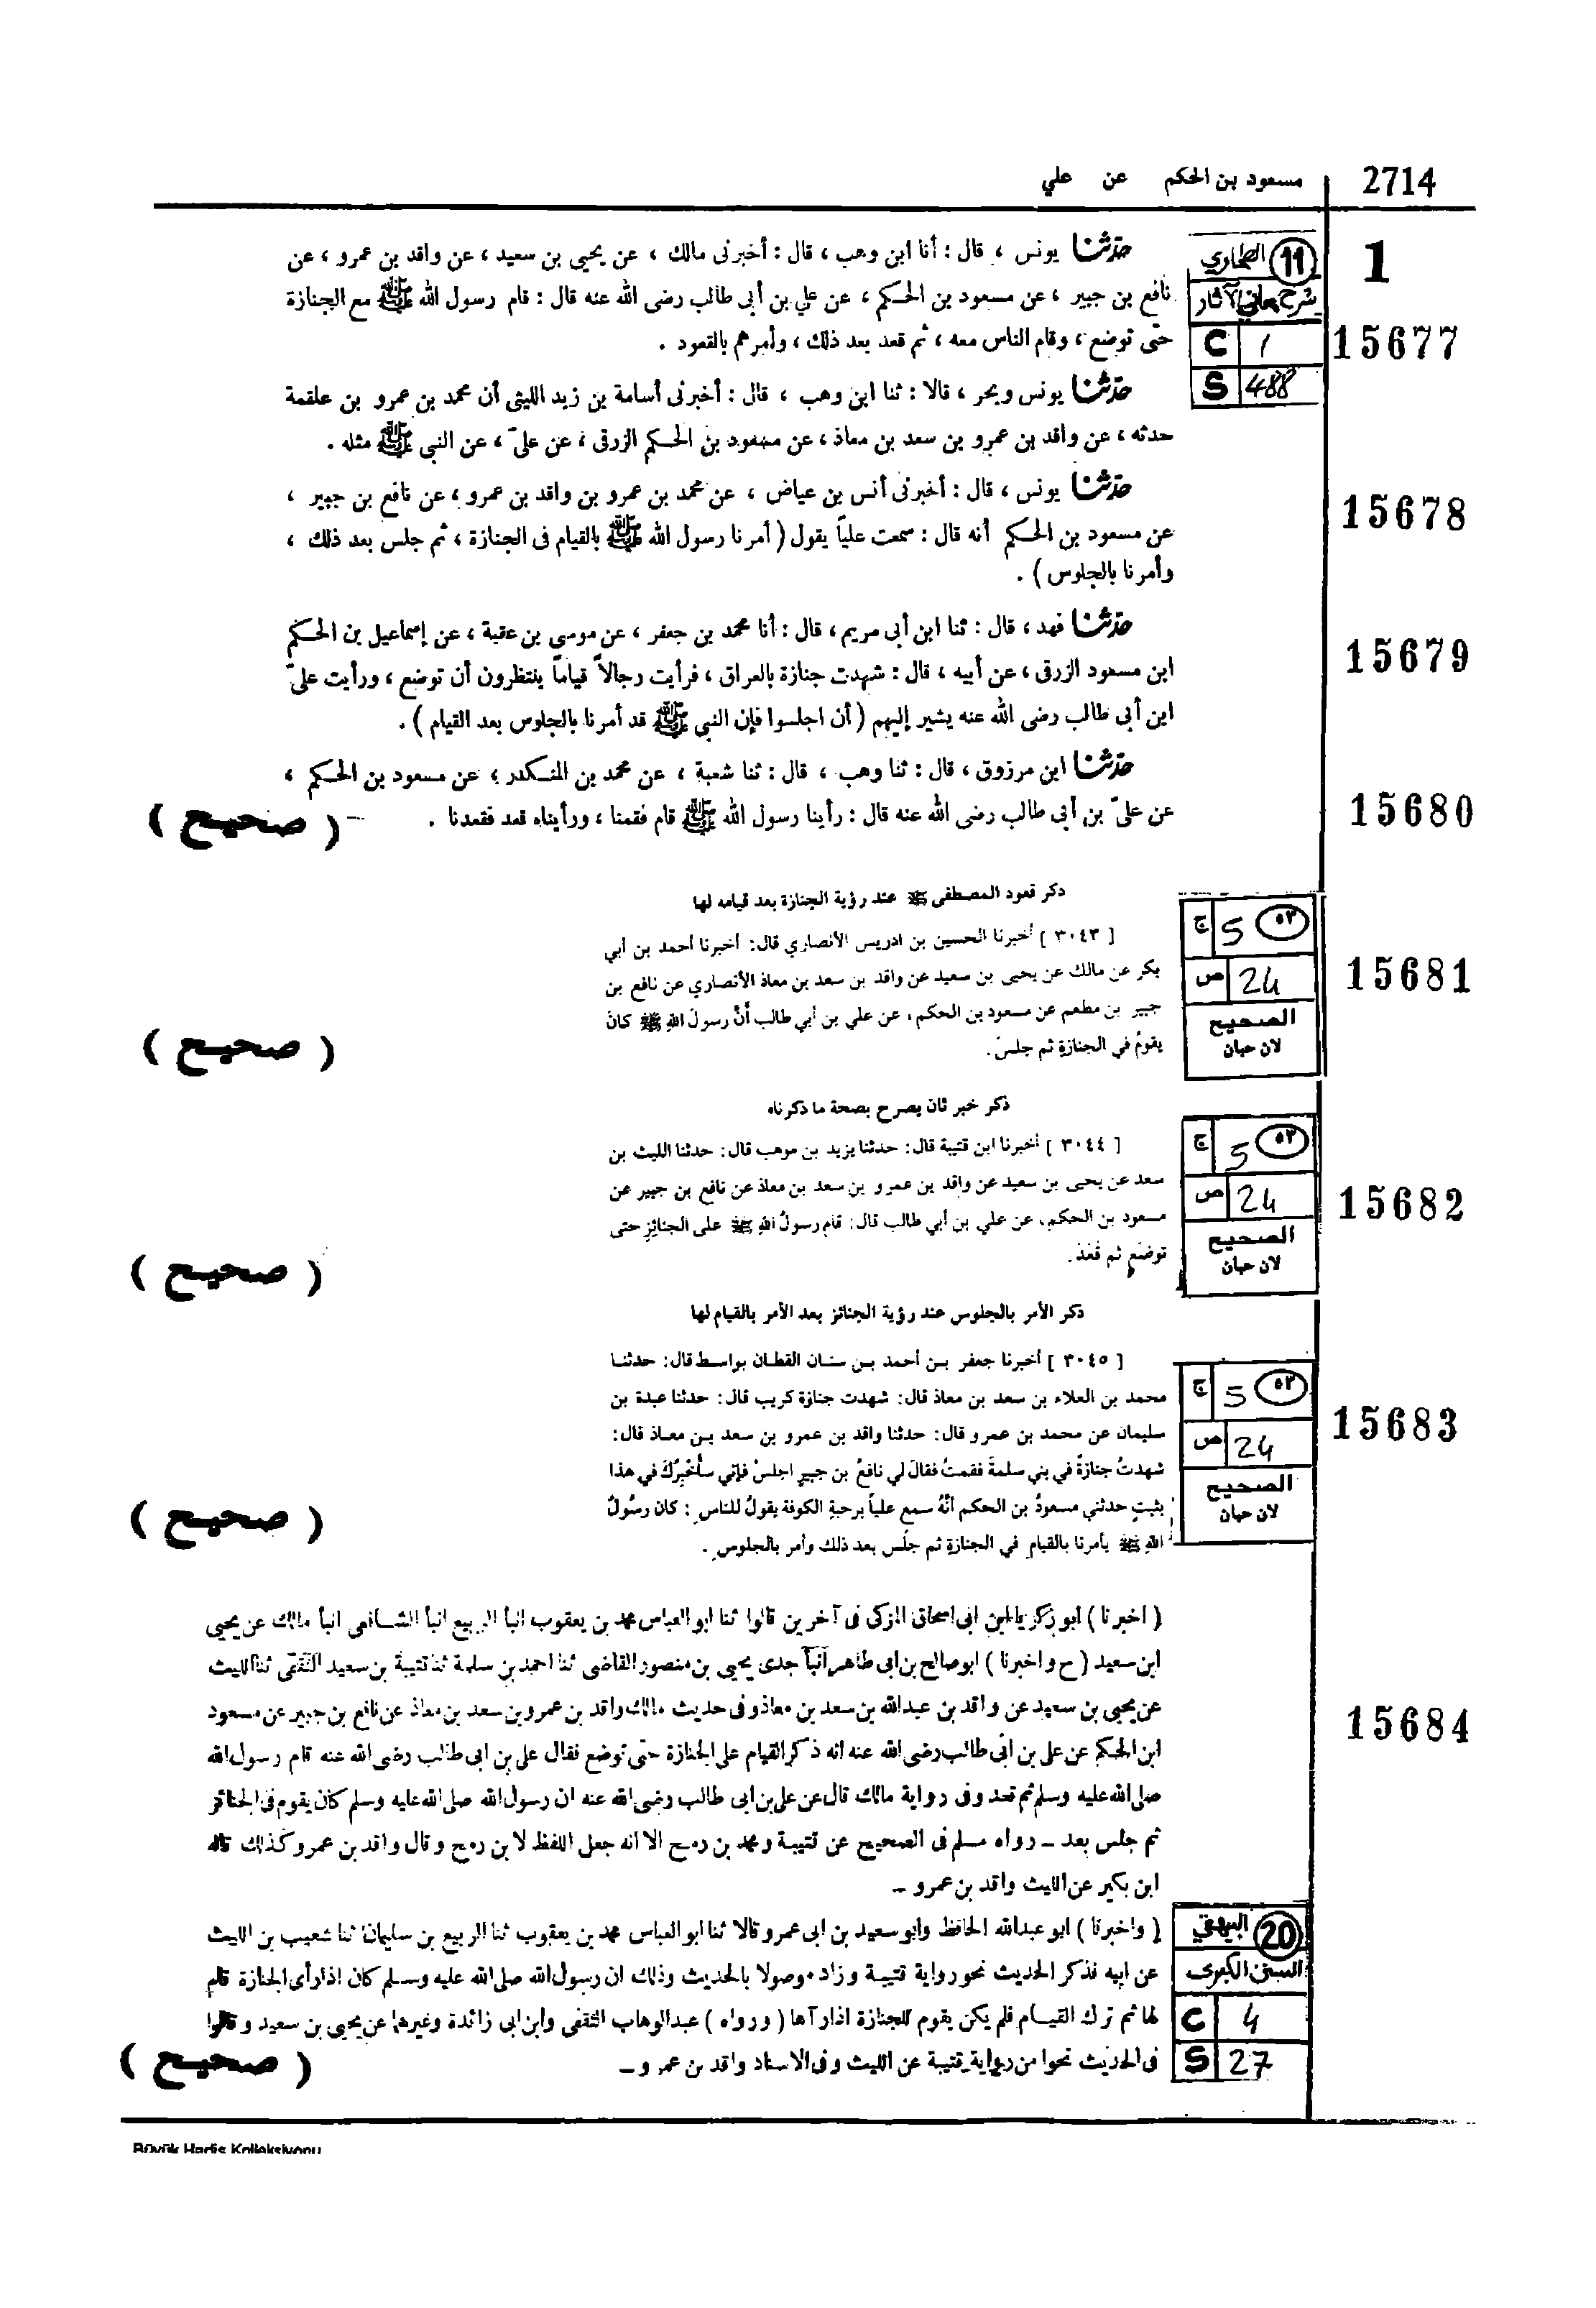 2714
مسعود بن الحكم عن علي
1
11 الطحاوي
شرح معاني الآثار
C 1
S 488
15677
حدثنا يونس ، قال : أنا ابن وهب ، قال : أخبرنى مالك ، عن يحيى بن سعيد ، عن واقد بن عمرو ، عن
نافع بن جبير ، عن مسعود بن الحكم ، عن علي بن أبى طالب رضى الله عنه قال : قام رسول الله ﷺ مع الجنازة
حتى توضع ، وقام الناس معه ، ثم قعد بعد ذلك ، وأمرهم بالقعود .
حدثنا يونس وبحر ، قالا : ثنا ابن وهب ، قال : أخبرنى أسامة بن زيد الليثى أن محمد بن عمرو بن علقمة
حدثه ، عن واقد بن عمرو بن سعد بن معاذ ، عن مسعود بن الحكم الزرقى ، عن علىّ ، عن النبي ﷺ مثله .
15678
حدثنا يونس ، قال : أخبرنى أنس بن عياض ، عن محمد بن عمرو بن واقد بن عمرو ، عن نافع بن جبير ،
عن مسعود بن الحكم أنه قال : سمعت علياً يقول ( أمرنا رسول الله ﷺ بالقيام فى الجنازة ، ثم جلس بعد ذلك ،
وأمرنا بالجلوس ) .
15679
حدثنا فهد ، قال : ثنا ابن أبى مريم ، قال : أنا محمد بن جعفر ، عن موسى بن عقبة ، عن إسماعيل بن الحكم
ابن مسعود الزرقى ، عن أبيه ، قال : شهدت جنازة بالعراق ، فرأيت رجالاً قياماً ينتظرون أن توضع ، ورأيت علىّ
ابن أبى طالب رضى الله عنه يشير إليهم ( أن اجلسوا فإن النبي ﷺ قد أمرنا بالجلوس بعد القيام ) .
15680
حدثنا ابن مرزوق ، قال : ثنا وهب ، قال : ثنا شعبة ، عن محمد بن المنكدر ، عن مسعود بن الحكم ،
عن علىّ بن أبى طالب رضى الله عنه قال : رأينا رسول الله ﷺ قام فقمنا ، ورأيناه قعد فقعدنا .
( صحيح )
ذكر قعود المصطفى ﷺ عند رؤية الجنازة بعد قيامه لها
٥٣ 5 ج
24 ص
الصحيح
لابن حبان
15681
[ ٣٠٤٣ ] أخبرنا الحسين بن ادريس الأنصاري قال: أخبرنا أحمد بن أبي
بكر عن مالك عن يحيى بن سعيد عن واقد بن سعد بن معاذ الأنصاري عن نافع بن
جبير بن مطعم عن مسعود بن الحكم، عن علي بن أبي طالب أنَّ رسولَ اللهِ ﷺ كانَ
يقومُ في الجنازةِ ثم جلسَ.
( صحيح )
ذكر خبر ثان يصرح بصحة ما ذكرناه
٥٣ 5 ج
24 ص
الصحيح
لابن حبان
15682
[ ٣٠٤٤ ] أخبرنا ابن قتيبة قال: حدثنا يزيد بن موهب قال: حدثنا الليث بن
سعد عن يحيى بن سعيد عن واقد بن عمرو بن سعد بن معاذ عن نافع بن جبير عن
مسعود بن الحكم، عن علي بن أبي طالب قال: قام رسولُ اللهِ ﷺ على الجنائزِ حتى
توضَعَ ثم قَعَدَ.
( صحيح )
ذكر الأمر بالجلوس عند رؤية الجنائز بعد الأمر بالقيام لها
٥٣ 5 ج
24 ص
الصحيح
لابن حبان
15683
[ ٣٠٤٥ ] أخبرنا جعفر بن أحمد بن سنان القطان بواسط قال: حدثنا
محمد بن العلاء بن سعد بن معاذ قال: شهدت جنازة كريب قال: حدثنا عبدة بن
سليمان عن محمد بن عمرو قال: حدثنا واقد بن عمرو بن سعد بن معاذ قال:
شهدتُ جنازةً في بني سلمةَ فقمتُ فقالَ لي نافعُ بن جبيرٍ اجلسْ فإني سأُخْبِرُكَ في هذا
بثبتٍ حدثني مسعودُ بن الحكم أنَّهُ سمع علياً برحبةِ الكوفة يقولُ للناسِ : كان رسُولُ
اللهِ ﷺ يأمرنا بالقيام في الجنازةِ ثم جلَس بعد ذلك وأمر بالجلوسِ.
( صحيح )
15684
( اخبرنا ) ابو زكريا بن ابى اسحاق المزكى فى آخرين قالوا ثنا ابو العباس محمد بن يعقوب انبأ الربيع انبأ الشافعى انبأ مالك عن يحيى
ابن سعيد ( ح واخبرنا ) ابو صالح بن ابى طاهر انبأ جدى يحيى بن منصور القاضى ثنا احمد بن سلمة ثنا قتيبة بن سعيد الثقفى ثنا الليث
عن يحيى بن سعيد عن واقد بن عبدالله بن سعد بن معاذ وفى حديث مالك واقد بن عمرو بن سعد بن معاذ عن نافع بن جبير عن مسعود
ابن الحكم عن على بن ابى طالب رضى الله عنه انه ذكر القيام على الجنازة حتى توضع فقال على بن ابى طالب رضى الله عنه قام رسول الله
صلى الله عليه وسلم ثم قعد وفى رواية مالك قال عن على بن ابى طالب رضى الله عنه ان رسول الله صلى الله عليه وسلم كان يقوم فى الجنائز
ثم جلس بعد ــ رواه مسلم فى الصحيح عن قتيبة ومحمد بن رمح الا انه جعل اللفظ لابن رمح وقال واقد بن عمرو كذلك قاله
ابن بكير عن الليث واقد بن عمرو ــ
20 البيهقي
السنن الكبرى
C 4
S 27
( واخبرنا ) ابو عبدالله الحافظ وابو سعيد بن ابى عمرو قالا ثنا ابو العباس محمد بن يعقوب ثنا الربيع بن سليمان ثنا شعيب بن الليث
عن ابيه فذكر الحديث نحو رواية قتيبة وزاد موصولا بالحديث وذلك ان رسول الله صلى الله عليه وسلم كان اذا رأى الجنازة قام
لها ثم ترك القيام فلم يكن يقوم للجنازة اذا رآها ( ورواه ) عبدالوهاب الثقفى وابن ابى زائدة وغيرهما عن يحيى بن سعيد وقالوا
فى الحديث نحوا من رواية قتيبة عن الليث وفى الاسناد واقد بن عمرو ــ
( صحيح )
Büyük Hadis Kolleksiyonu